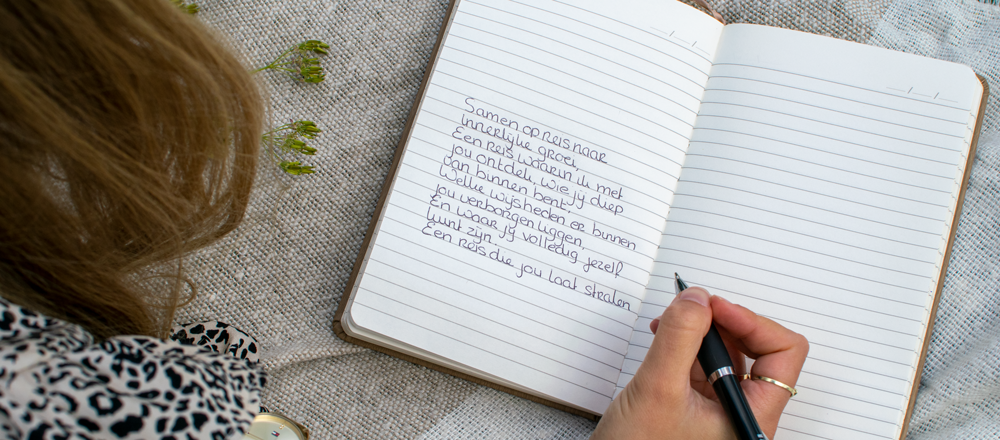 Samen op reis naar
innerlijke groei,
Een reis waarin ik met
jou ontdek, wie jij diep
van binnen bent,
Welke wijsheden er binnen
jou verborgen liggen,
En waar jij volledig jezelf
kunt zijn.
Een reis die jou laat stralen